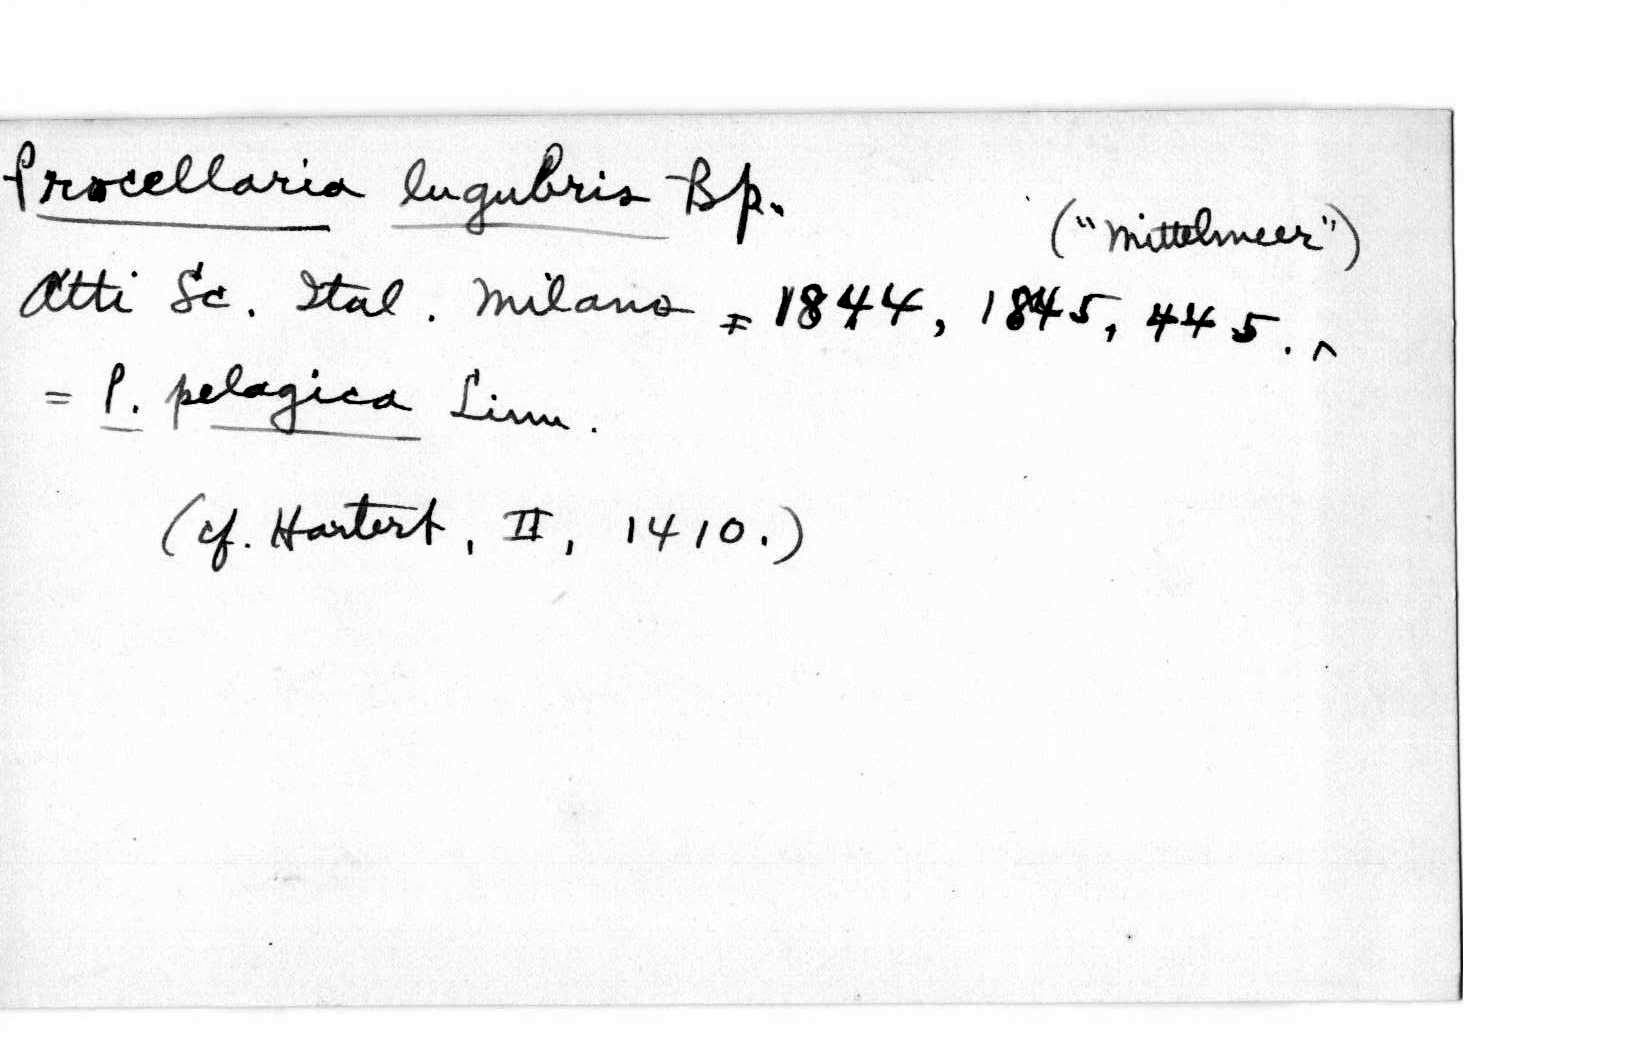 Procellaria lugubris Bp.
("Mittelmeer")
Atti Sc. Ital. Milano = 1844, 1845, 445. ^
= P. pelagica Linn.
(cf. Hartert, II, 1410.)